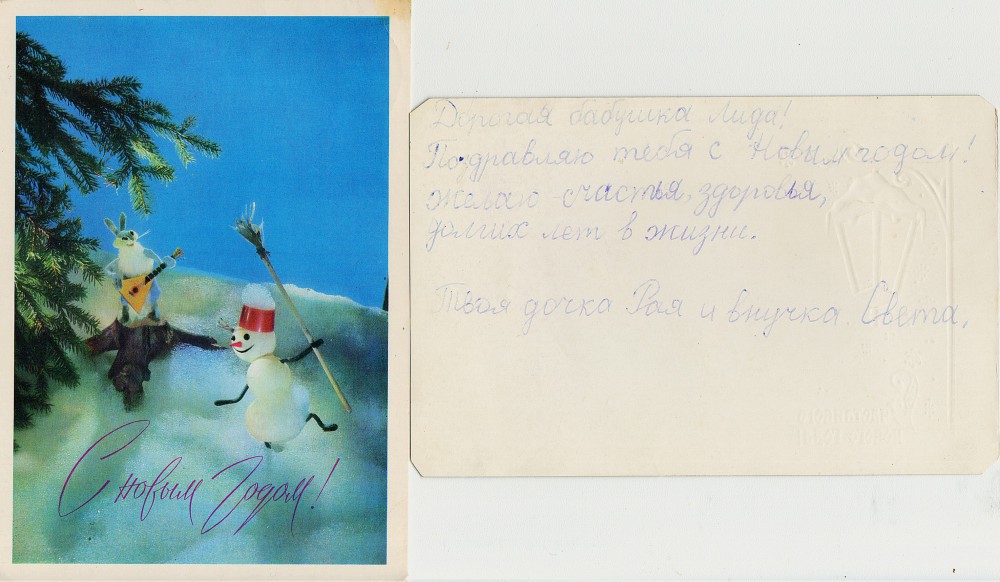 С новым годом!
Дорогая бабушка Лида!
Поздравляю тебя с Новым годом!
Желаю счастья, здоровья,
долгих лет в жизни.
Твоя дочка Рая и внучка Света.